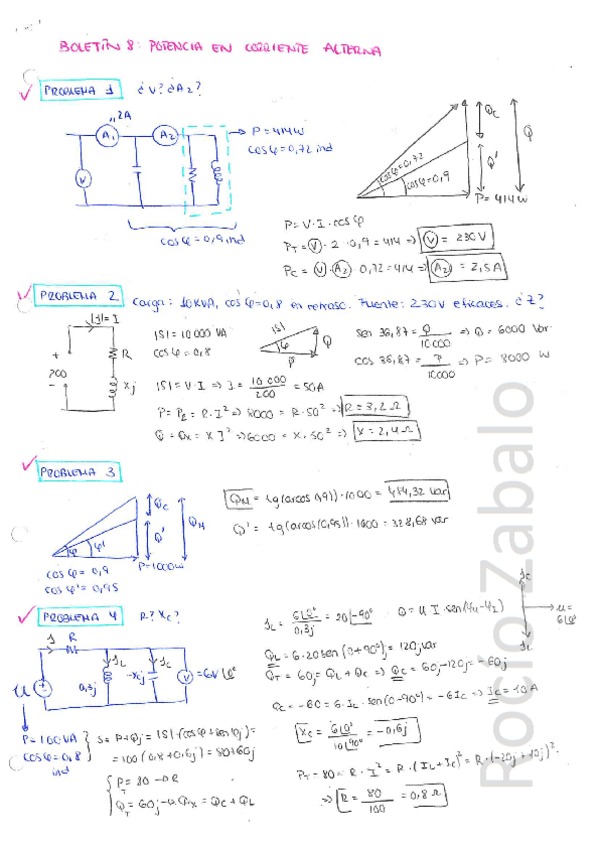 BOLETÍN 8: POTENCIA EN CORRIENTE ALTERNA
PROBLEMA 1 ¿V? ¿A2?
2A
A1
A2
V
P=414W
cosφ=0,72 ind
cosφ=0,9 ind
cosφ=0,72
cosφ=0,9
Qc
Q'
Q
P=414W
P=V·I·cosφ
PT=V·2·0,9=414 ⇒ V = 230V
Pc=V·A2·0,72=414 ⇒ A2 = 2,5A
PROBLEMA 2 Carga: 10KVA, cosφ=0,8 en retraso. Fuente: 230V eficaces. ¿Z?
|S|=I
+
200
-
R
Xj
|S|=10000 VA
cosφ=0,8
|S|
φ
P
Q
sen 36,87=Q/10000 ⇒ Q=6000 Var
cos 36,87=P/10000 ⇒ P=8000 W
|S|=V·I ⇒ I=10000/200=50A
P=PR=R·I² ⇒ 8000=R·50² ⇒ R=3,2Ω
Q=Qx=X I² ⇒ 6000=X·50² ⇒ X=2,4Ω
PROBLEMA 3
Qc
Q'
QM
φ
φ'
P=1000W
cosφ=0,9
cosφ'=0,95
QM=tg(arcos(0,9))·1000=484,32 var
Q'=tg(arcos(0,95))·1000=328,68 var
PROBLEMA 4 R? Xc?
I
R
IL
IC
U
0,3j
-Xcj
V
=6V∠0°
P=100VA
cosφ=0,8
ind
S=P+Qj=|S|(cosφ+senφj)=
=100(0,8+0,6j)=80+60j
PT=80→R
QT=60j→Qx=Qc+QL
IL=6∠0°/0,3j=20∠-90° Q=U I·sen(φu-φI)
QL=6·20sen(0+90°)=120jvar
QT=60j=QL+Qc ⇒ Qc=60j-120j=-60j
Qc=-60=6·IL·sen(0-90°)=-6Ic ⇒ Ic=10A
Xc=6∠0°/10∠90°=-0,6j
PT=80=R·I²=R·(IL+Ic)²=R·(-20j+10j)²
⇒ R=80/100=0,8Ω
IC
U=
6∠0°
IL
Rocio Zabalo